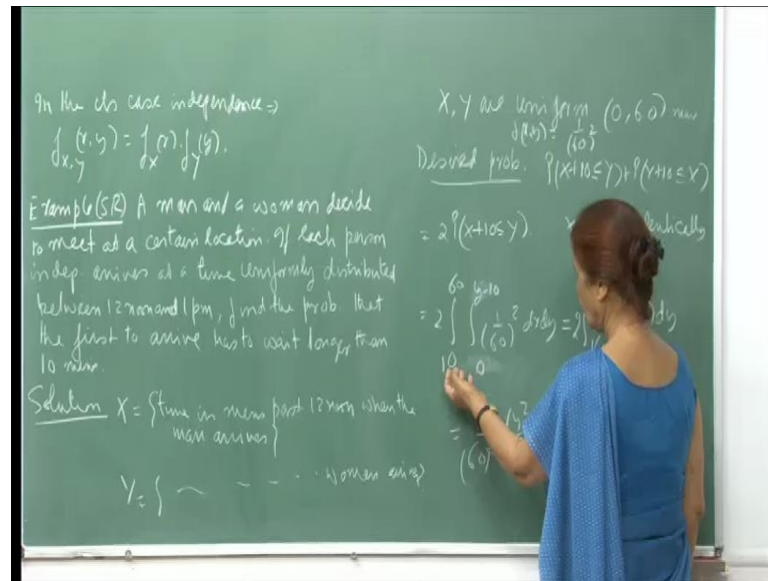 In the cts case independence ⇒
f_{X,Y}(x,y) = f_X(x) · f_Y(y).
Example (SR) A man and a woman decide
to meet at a certain location. If each person
indep. arrives at a time uniformly distributed
between 12 noon and 1 pm, find the prob. that
the first to arrive has to wait longer than
10 mins.
Solution X = {time in mins past 12 noon when the
man arrives}
Y = { ~ - - - - women arrives}
X, Y are uniform (0, 60) mins
f(x,y) = 1/(60)^2
Desired prob. P(X+10 ≤ Y) + P(Y+10 ≤ X)
= 2 P(X+10 ≤ Y). entically
= 2 ∫_{10}^{60} ∫_0^{y-10} (1/60)^2 dx dy = 2 ∫ dy
= (60) y^2